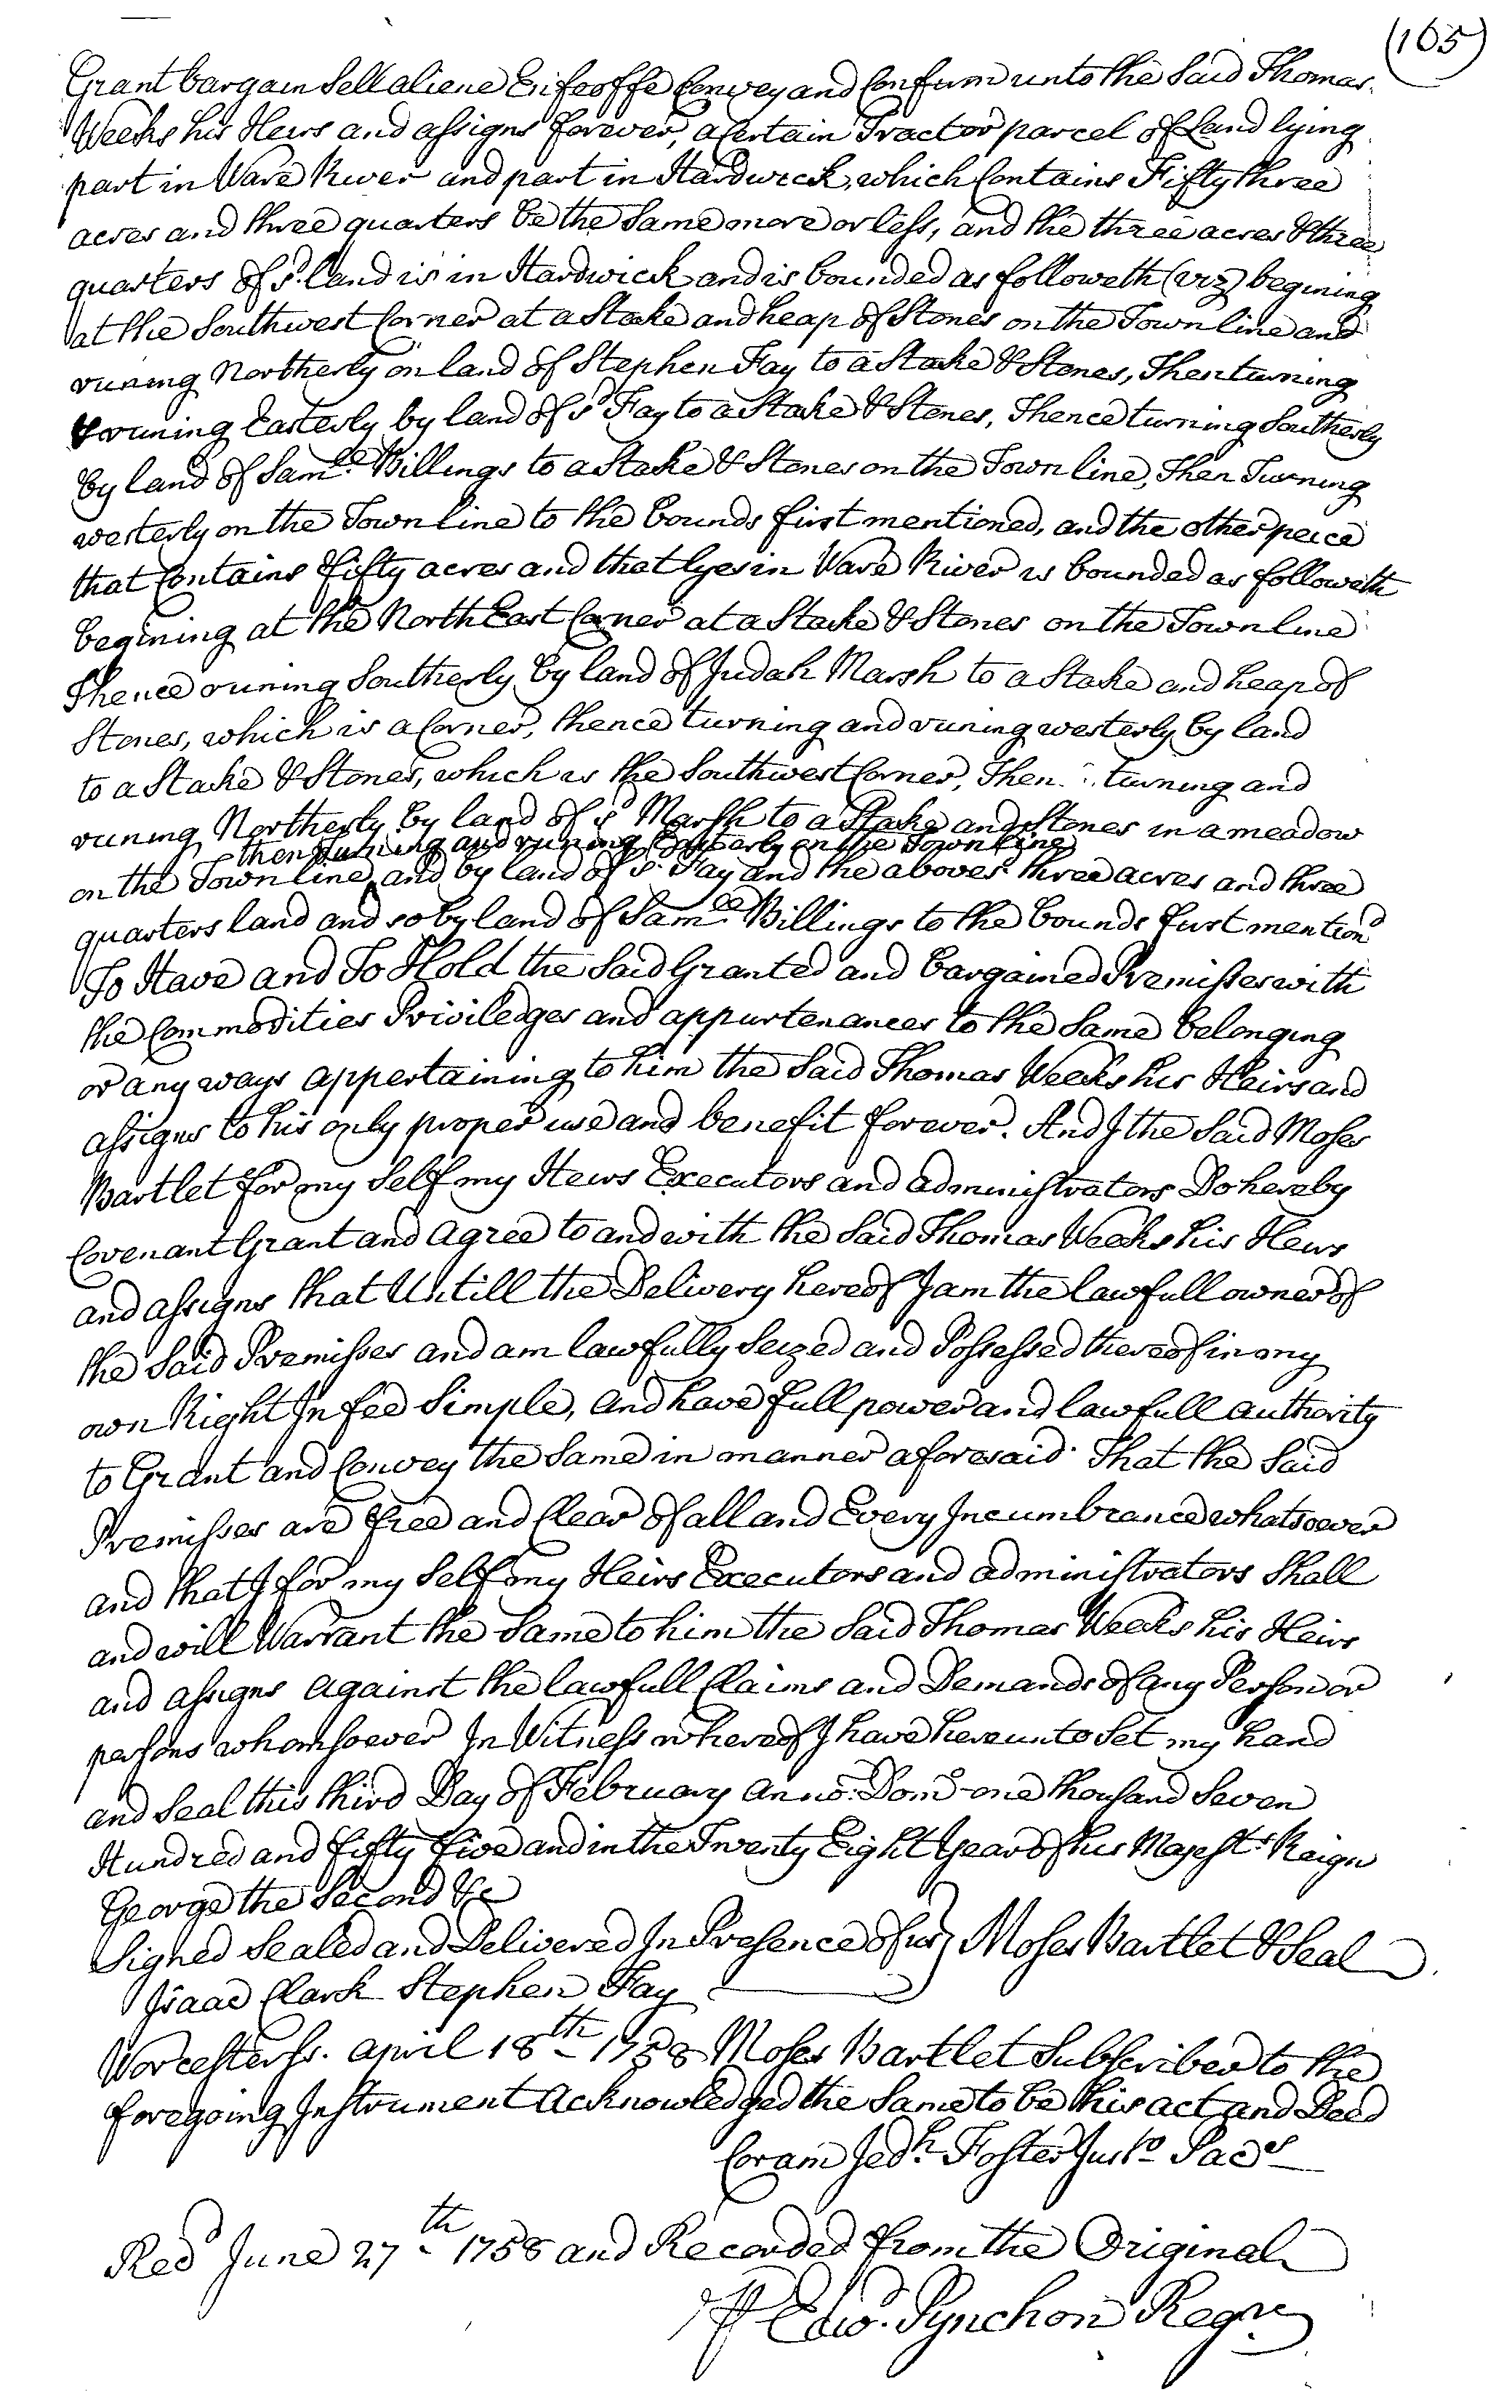 (165)
Grant bargain Sell aliene Enfeoffe Convey and Confirm unto the Said Thomas
Weeks his Heirs and assigns forever, a Certain Tract or parcel of Land lying
part in Ware River and part in Hardwick, which Contains Fifty three
acres and three quarters be the Same more or less, and the three acres & three
quarters of sd. land is in Hardwick and is bounded as followeth (viz) begining
at the Southwest Corner at a Stake and heap of Stones on the Town line and
runing Northerly on land of Stephen Fay to a Stake & Stones, Then turning
& runing Easterly by land of sd Fay to a Stake & Stones, Thence turning Southerly
by land of Samll. Billings to a Stake & Stones on the Town line, Then Turning
westerly on the Town line to the bounds first mentioned, and the other peice
that Contains fifty acres and that lyes in Ware River is bounded as followeth
begining at the North East Corner at a Stake & Stones on the Town line
Thence runing Southerly by land of Judah Marsh to a Stake and heap of
Stones, which is a Corner, thence turning and runing westerly by land
to a Stake & Stones, which is the Southwest Corner, Then turning and
runing Northerly by land of sd Marsh to a Stake and Stones in a meadow
then turning and runing Easterly on the Town line
on the Town line, and by land of sd. Fay and the above sd. three acres and three
quarters land and so by land of Samll. Billings to the bounds first mentiond
To Have and To Hold the Said Granted and bargained Premisses with
the Commodities Priviledges and appurtenances to the Same belonging
or any ways appertaining to him the Said Thomas Weeks his Heirs and
assigns to his only proper use and benefit forever. And I the Said Moses
Bartlet for my Self my Heirs Executors and administrators Do hereby
Covenant Grant and agree to and with the Said Thomas Weeks his Heirs
and assigns that Untill the Delivery hereof I am the lawfull owner of
the Said Premisses and am lawfully Seized and Possessed thereof in my
own Right In fee Simple, and have full power and lawfull authority
to Grant and Convey the Same in manner aforesaid That the Said
Premisses are free and Clear of all and Every Incumbrance whatsoever
and that I for my Self my Heirs Executors and administrators Shall
and will Warrant the Same to him the Said Thomas Weeks his Heirs
and assigns against the lawfull Claims and Demands of any Person or
persons whomsoever In Witness whereof I have hereunto Set my hand
and Seal this third Day of February anno: Domo one thousand Seven
Hundred and fifty five and in the Twenty Eight Year of his Majests. Reign
George the Second &c
Signed Sealed and Delivered In Presence of us } Moses Bartlet & Seal
Isaac Clark Stephen Fay
Worcester Ss. april 18th 1758 Moses Bartlet Subscriber to the
foregoing Instrument acknowledged the Same to be his act and Deed
Coram Jedh. Foster Justo Pacs
Recd June 27th 1758 and Recorded from the Original
Edwd. Pynchon Regr